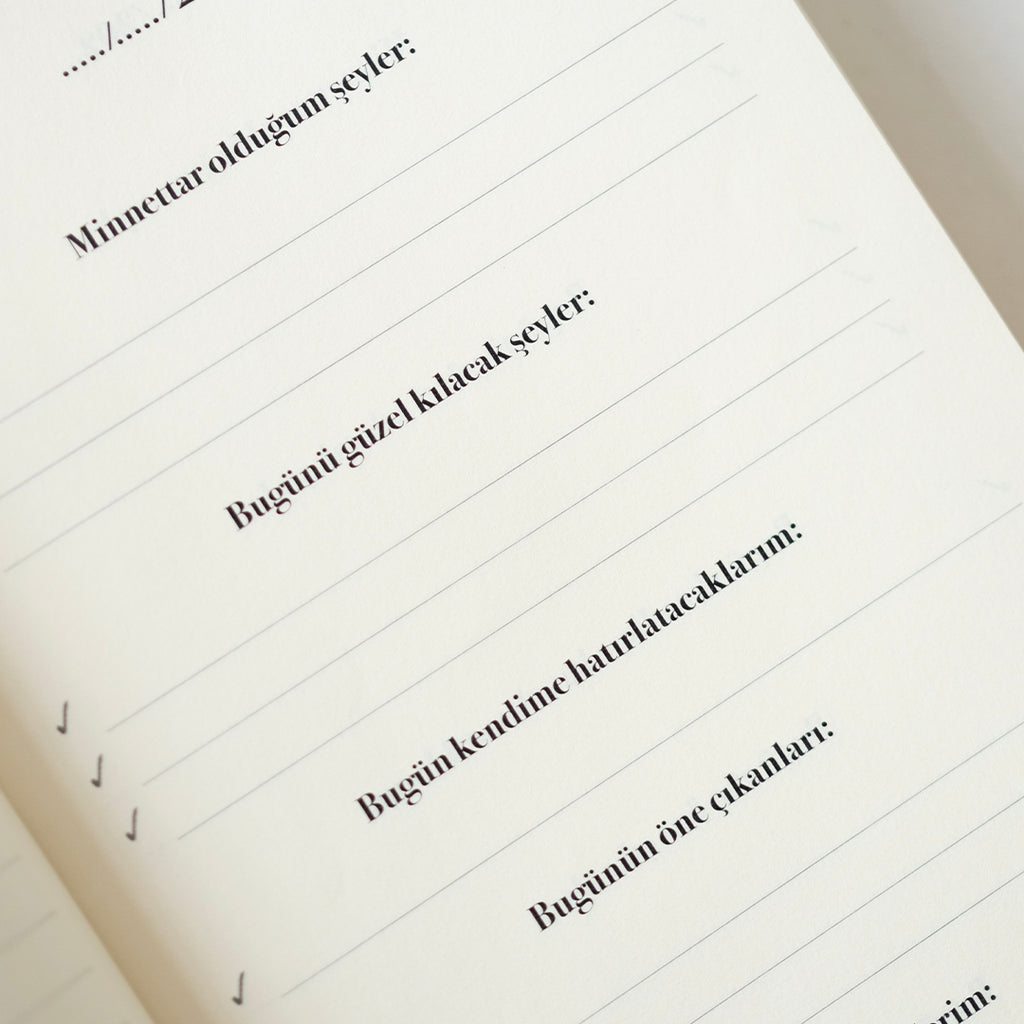 ...../...../
Minnettar olduğum şeyler:
Bugünü güzel kılacak şeyler:
Bugün kendime hatırlatacaklarım:
Bugünün öne çıkanları: